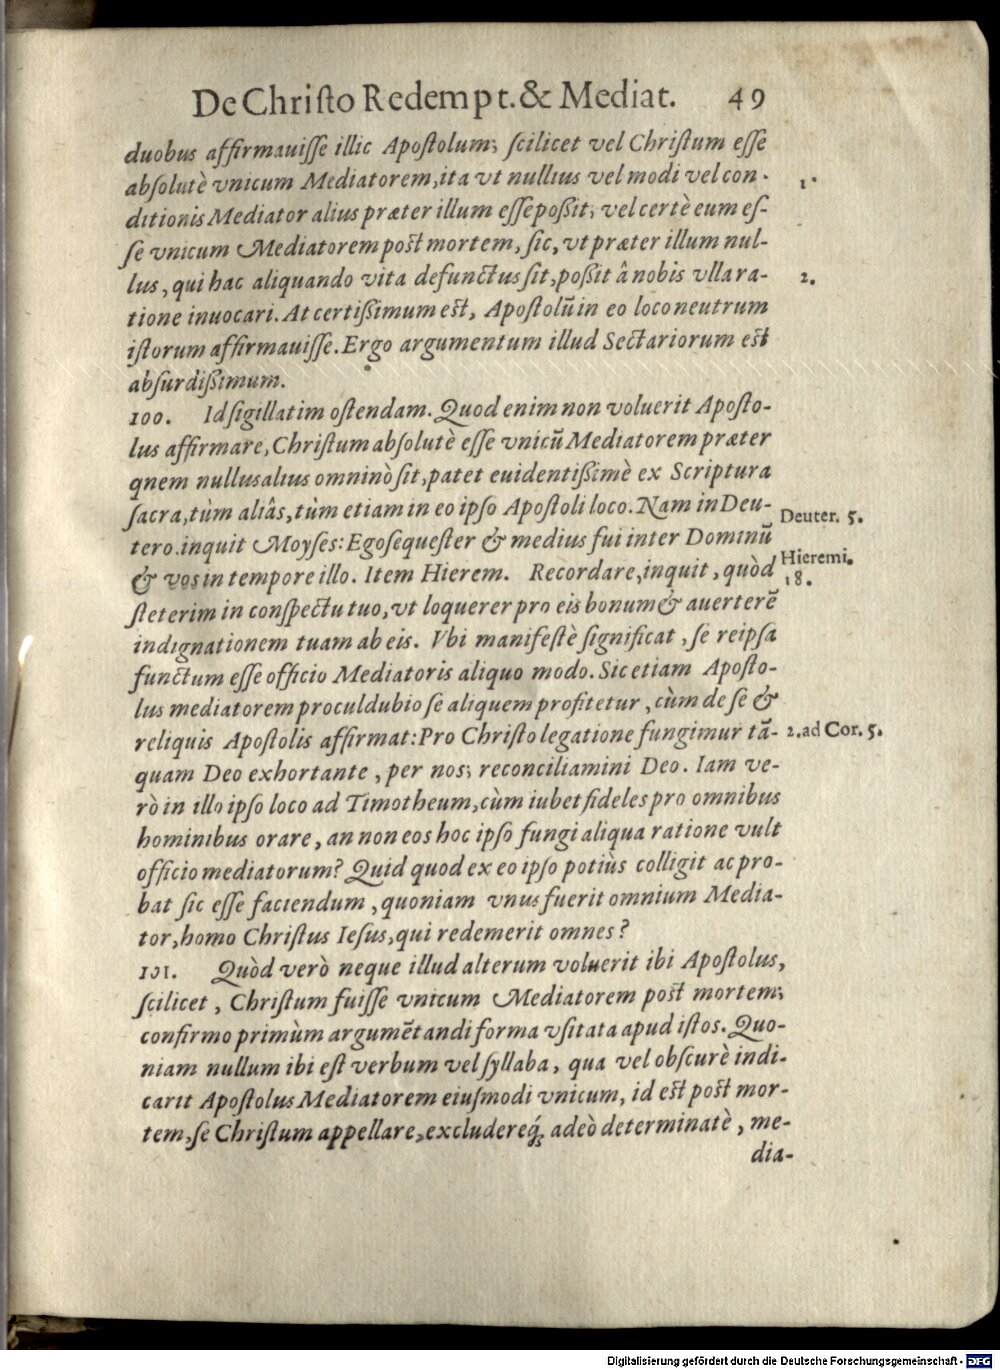 De Chriſto Redempt. & Mediat. 49
duobus affirmauiſſe illic Apoſtolum; ſcilicet vel Chriſtum eſſe
abſolutè vnicum Mediatorem, ita vt nullius vel modi vel con-
1.
ditionis Mediator alius præter illum eſſe poßit; vel certè eum eſ-
ſe vnicum Mediatorem post mortem, ſic, vt præter illum nul-
lus, qui hac aliquando vita defunctus ſit, poßit â nobis vlla ra-
2.
tione inuocari. At certißimum est, Apoſtolū in eo loco neutrum
iſtorum affirmauiſſe. Ergo argumentum illud Sectariorum est
abſurdißimum.
100. Id ſigillatim oſtendam. Quod enim non voluerit Apoſto-
lus affirmare, Chriſtum abſolutè eſſe vnicū Mediatorem præter
qnem nullus alius omninò ſit, patet euidentißimè ex Scriptura
ſacra, tùm aliâs, tùm etiam in eo ipſo Apoſtoli loco. Nam in Deu-
Deuter. 5.
tero. inquit Moyſes: Ego ſequeſter & medius fui inter Dominū
& vos in tempore illo. Item Hierem. Recordare, inquit, quòd
Hieremi.
18.
ſteterim in conſpectu tuo, vt loquerer pro eis bonum & auerterē
indignationem tuam ab eis. Vbi manifeſtè ſignificat, ſe reipſa
functum eſſe officio Mediatoris aliquo modo. Sic etiam Apoſto-
lus mediatorem proculdubio ſe aliquem profitetur, cùm de ſe &
reliquis Apoſtolis affirmat: Pro Chriſto legatione fungimur tā-
2. ad Cor. 5.
quam Deo exhortante, per nos; reconciliamini Deo. Iam ve-
rò in illo ipſo loco ad Timotheum, cùm iubet fideles pro omnibus
hominibus orare, an non eos hoc ipſo fungi aliqua ratione vult
officio mediatorum? Quid quod ex eo ipſo potiùs colligit ac pro-
bat ſic eſſe faciendum, quoniam vnus fuerit omnium Media-
tor, homo Chriſtus Ieſus, qui redemerit omnes?
101. Quòd verò neque illud alterum voluerit ibi Apoſtolus,
ſcilicet, Chriſtum fuiſſe vnicum Mediatorem post mortem;
confirmo primùm argumētandi forma vſitata apud iſtos. Quo-
niam nullum ibi eſt verbum vel ſyllaba, qua vel obſcurè indi-
carit Apoſtolus Mediatorem eiuſmodi vnicum, id est post mor-
tem, ſe Chriſtum appellare, excludereq́; adeò determinatè, me-
dia-
Digitalisierung gefördert durch die Deutsche Forschungsgemeinschaft - DFG